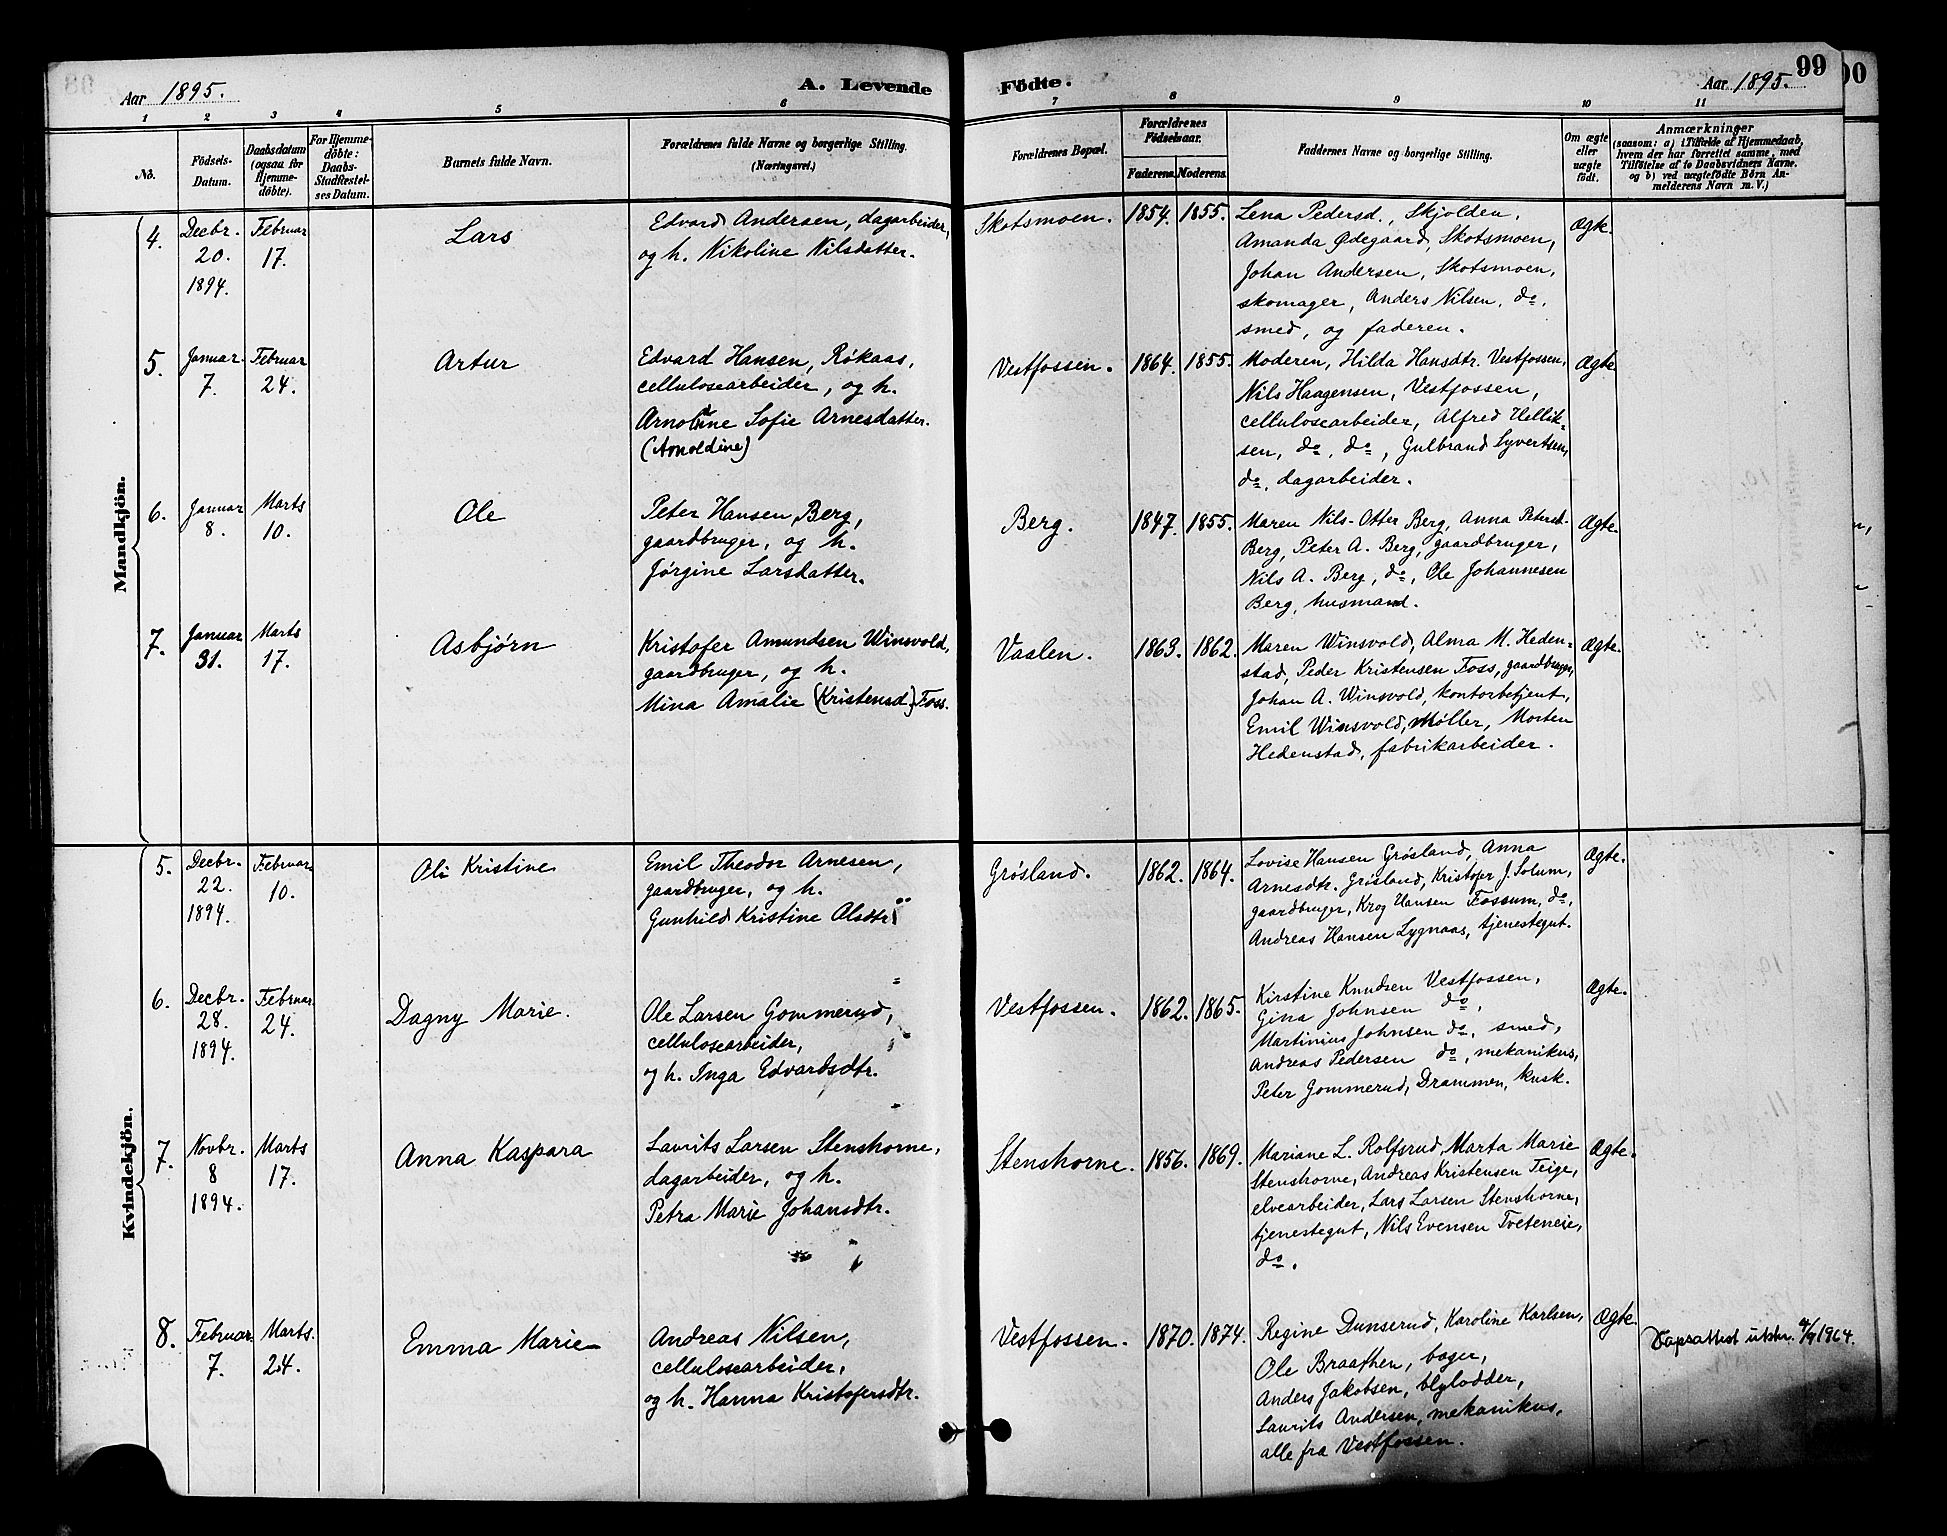 Aar 1895.
A. Levende
Fødte.
Aar 1895.
99
00
1
2
3
4
5
6
7
8
9
10
11
No.
Fødsels-
Datum.
Daabsdatum
(ogsaa for
Hjemme-
døbte).
For Hjemme-
døbte:
Daabs-
Stadfæstel-
ses Datum.
Barnets fulde Navn.
Forældrenes fulde Navne og borgerlige Stilling.
(Næringsvei.)
Forældrenes Bopæl.
Forældrenes
Fødselsaar.
Faderens.
Moderens.
Faddernes Navne og borgerlige Stilling.
Om ægte
eller
uægte
født.
Anmærkninger
(saasom: a) i Tilfælde af Hjemmedaab,
hvem der har forrettet samme, med
Tilføielse af to Daabsvidners Navne.
og b) ved uægtefødte Børn An-
melderens Navn m. V.)
Mandkjön.
4.
Decbr.
20.
1894.
Februar
17.
Lars
Edvard Andersen, dagarbeider,
og h. Nikoline Nilsdatter.
Skotsmoen.
1854.
1855.
Lena Pedersd., Skjolden,
Amanda Ødegaard, Skotsmoen,
Johan Andersen, Skotsmoen,
skomager, Anders Nilsen, do,
smed, og faderen.
Ægte.
5.
Januar
7.
Februar
24.
Artur
Edvard Hansen, Røkaas,
cellulosearbeider, og h.
Arnoldine Sofie Arnesdatter.
(Arnoldine)
Vestfossen.
1864.
1855.
Moderen, Hilda Hansdtr. Vestfossen,
Nils Haagensen, Vestfossen,
cellulosearbeider, Alfred Hellik-
sen, do, do, Gulbrand Syvertsen,
do, dagarbeider.
Ægte
6.
Januar
8.
Marts
10.
Ole
Peter Hansen Berg,
gaardbruger, og h.
Jørgine Larsdatter.
Berg.
1847.
1855.
Maren Nils-Otter Berg, Anna Petersd.
Berg, Peter A. Berg, gaardbruger,
Nils A. Berg, do, Ole Johannesen
Berg, husmand.
Ægte.
7.
Januar
31.
Marts
17.
Asbjørn
Kristofer Amundsen Winsvold,
gaardbruger, og h.
Mina Amalie (Kristensd.) Foss.
Vaalen.
1863.
1862.
Maren Winsvold, Alma M. Heden-
stad, Peder Kristensen Foss, gaardbruger,
Johan A. Winsvold, kontorbetjent,
Emil Winsvold, Møller, Morten
Hedenstad, fabrikarbeider.
Ægte.
Kvindekjön.
5.
Decbr.
22.
1894.
Februar
10.
Ali Kristine
Emil Theodor Arnesen,
gaardbruger, og h.
Gunhild Kristine Olsdtr.
Grøsland.
1862.
1864.
Lovise Hansen Grøsland, Anna
Arnesdtr. Grøsland, Kristofer J. Solum,
gaardbruger, Krog Hansen Fossum, do,
Andreas Hansen Lygnaas, tjenestegut.
Ægte.
6.
Decbr.
28.
1894.
Februar
24.
Dagny Marie.
Ole Larsen Gommerud,
cellulosearbeider,
og h. Inga Edvardsdtr.
Vestfossen.
1862.
1865.
Kirstine Knudsen Vestfossen,
Gina Johnsen do,
Martinius Johnsen do, smed,
Andreas Pedersen do, mekanikus,
Peter Gommerud, Drammen, kusk.
Ægte.
7.
Novbr.
8
1894.
Marts
17.
Anna Kaspara
Laurits Larsen Stenshorne,
dagarbeider, og h.
Petra Marie Johansdtr.
Stenshorne.
1856.
1869.
Mariane L. Rolfsrud, Marta Marie
Stenshorne, Andreas Kristensen Teige,
elvearbeider, Lars Larsen Stenshorne,
tjenestegut, Nils Evensen Tveteneie,
do.
Ægte.
8.
Februar
7.
Marts.
24.
Emma Marie
Andreas Nilsen,
cellulosearbeider,
og h. Hanna Kristofersdtr.
Vestfossen.
1870.
1874.
Regine Dunserud, Karoline Karlsen,
Ole Braathen, bager,
Anders Jakobsen, blylodder,
Laurits Andersen, mekanikus,
alle fra Vestfossen.
Ægte
Dåpsattest utstr. 4/9 1964.